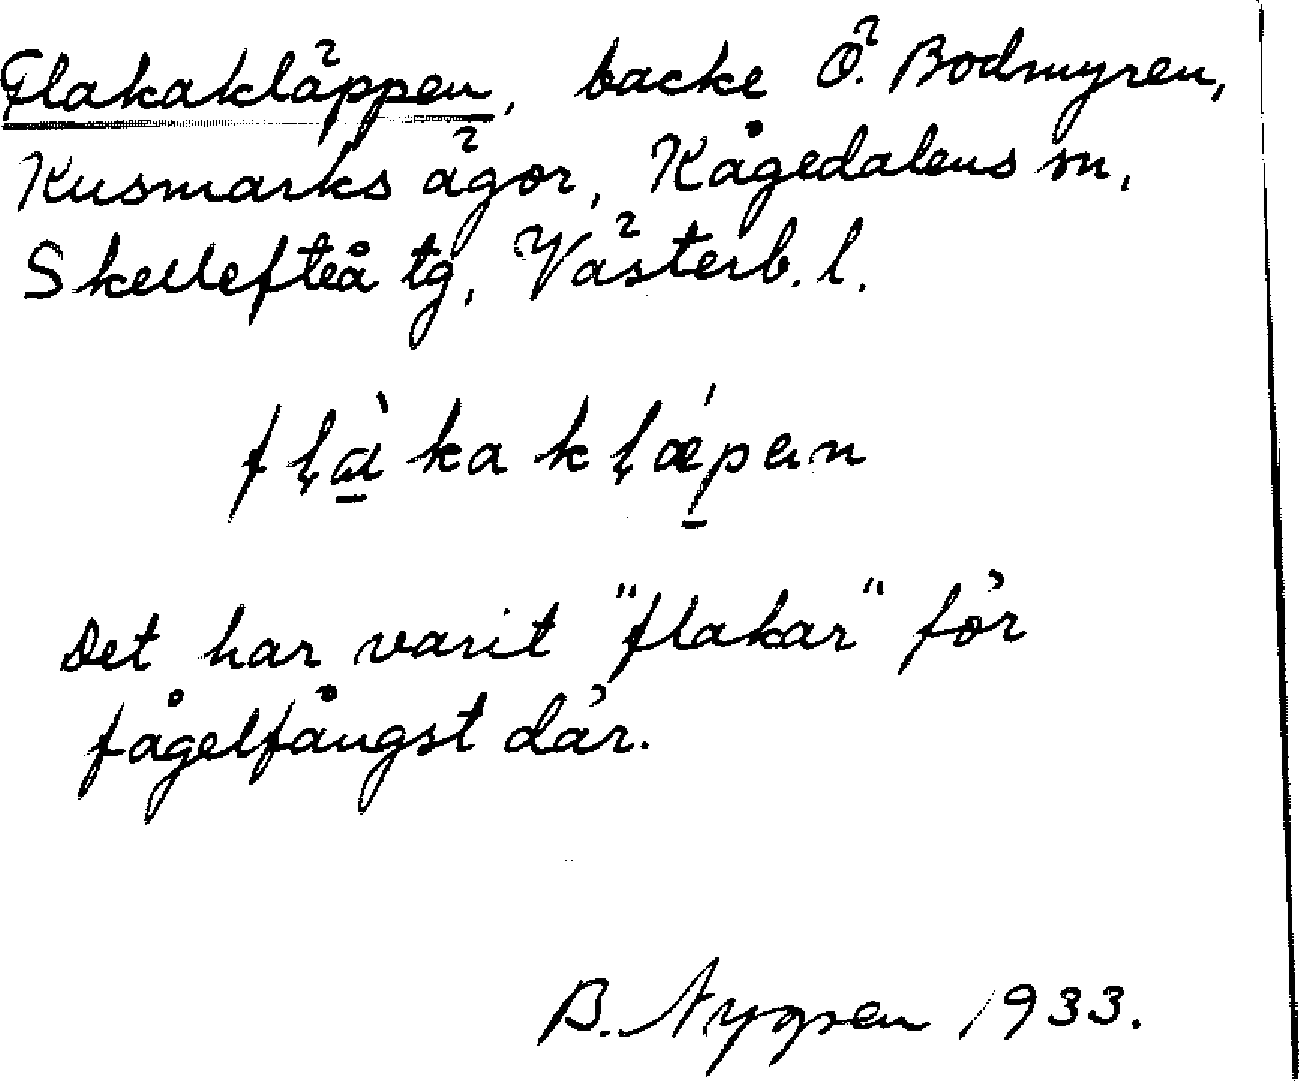 Flakakläppen, backe Ö. Bodmyren,
Kusmarks ägor, Kågedalens sn,
Skellefteå tg, Västerb. l.
fḷà̱kakḷǽp̱en
Det har varit "flakar" för
fågelfångst där.
B. Nygren 1933.